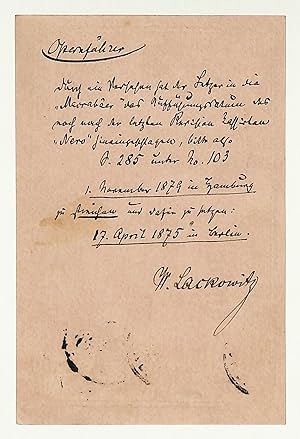 Opernführer
Durch ein Versehen hat der Setzer in die
„Maccabäer“ das Aufführungsdatum des
noch nach der letzten Revision
„Nero“ hineingeschlagen, bitte also
S. 285 unter No. 103
1. November 1879 in Hamburg
zu streichen und dafür zu setzen:
17. April 1875 in Berlin.
W. Lackowitz